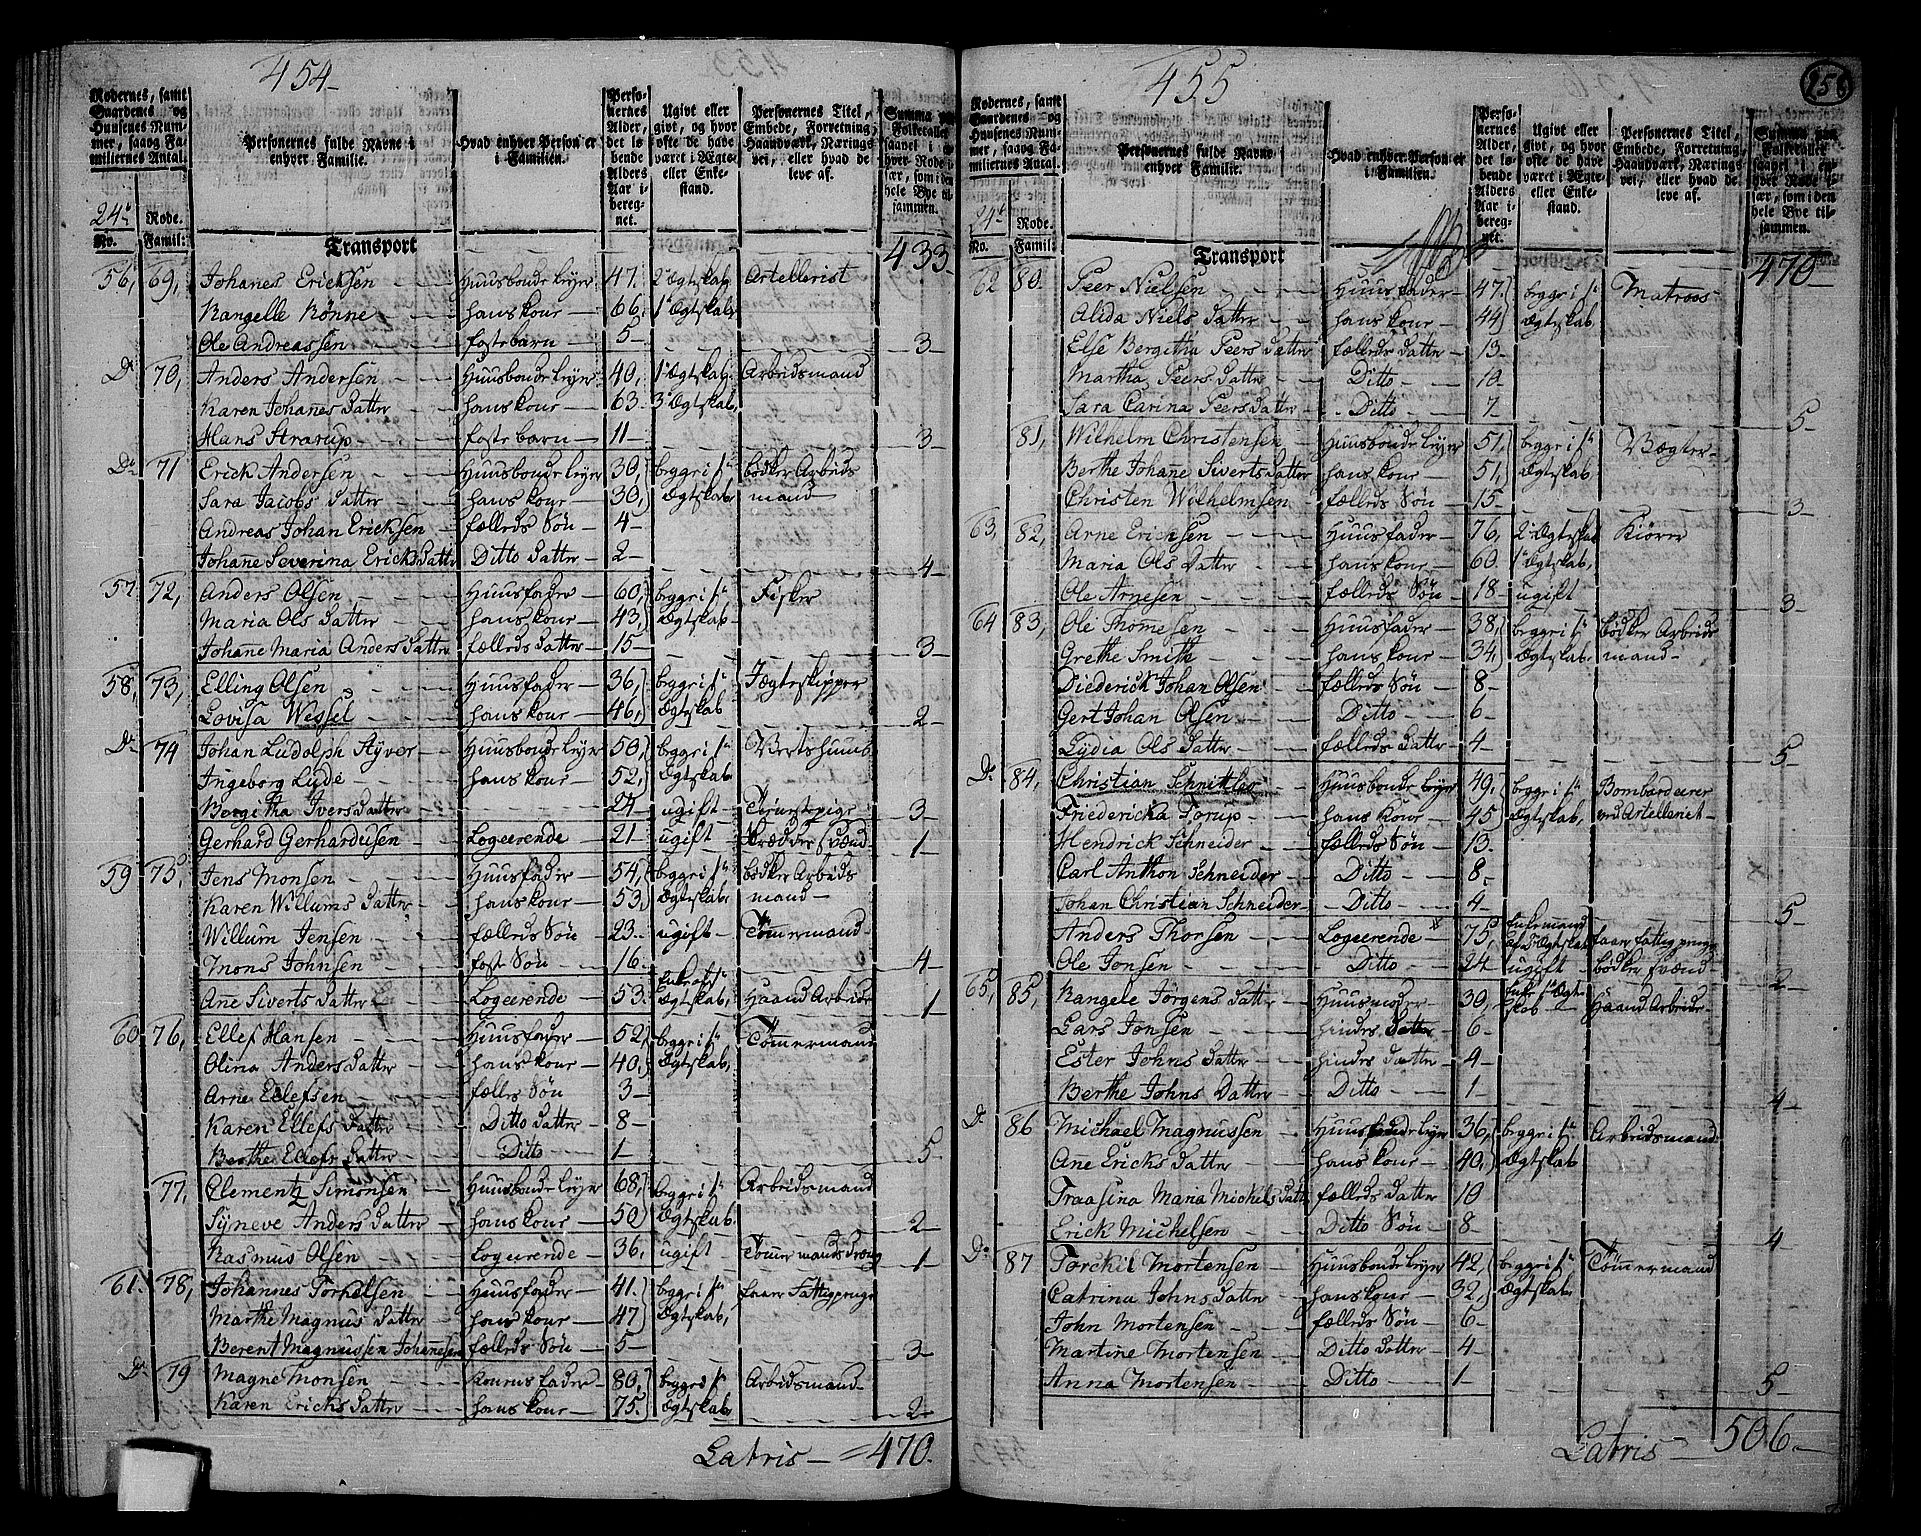 454
Rodernes, samt Gaardenes og Huusenes Nummer, saavel Familiernes Antal.
Personernes fulde Navne i enhver Familie.
Hvad enhver Person er i Familien.
Personernes Alder, det løbende Alders Aar iberegnet.
Ugivt eller givt, og hvor ofte de have været i Ægte- eller Enkestand.
Personernes Titel, Embede, Forretning, Haandværk, Næringsvei, eller hvad de leve af.
24de Rode.
No. Famil:
Transport 433
56, 69, Johanes Ericksen Huusbonde leyer 47. 2 Ægtskab Artellerist
Rangelle Rønne hans Kone 66. 1 Ægtskab
Ole Andreassen fostebarn 5 3
Do 70, Anders Andersen Huusbonde leyer 40, 1 Ægtskab Arbeidsmand
Karen Johanes Datter hans Kone 63. 3 Ægtskab,
Hans Strarup foste barn 11 3
Do 71 Erick Andersen Huusbonde leyer 30, begge i 1te bødker Arbeids
Sara Jacobs Datter hans Kone 30, Ægtskab mand
Andreas Johan Ericksen fælleds Søn 4
Johane Severina Ericks Datter Ditto Datter 2 4
57 72, Anders Olsen Huusfader 60, begge i 1te Fisker
Maria Ols Datter hans Kone 43, Ægtskab
Johane Maria Anders Datter fælleds Datter 15 3
58, 73, Elling Olsen Huusfader 36, begge i 1te Jægteskipper
Lovisa Wessel hans Kone 46, Ægtskab 2
Do 74 Johan Ludolph Styver Huusbonde leyer 50, begge i 1te Vertshuus
Ingeborg Lude hans Kone 52, Ægtskab
Borgitha Ivers Datter 24 ugift Tienestpige 3
Gerhard Gerhardusen Logeerende 21 ugift Skrædder Svend 1
59 75, Jens Monsen Huusfader 54, begge i 1te bødker Arbeids
Karen Willums Datter hans Kone 53, Ægtskab mand
Willum Jensen fælleds Søn 23 ugift Tømmermand
Mons Johnsen fost Søn 16 4
Ane Siverts Datter Logeerende 53. Ægtskab, Haand Arbeide 1
60 76, Ellef Hansen Huusfader 52, begge i 1te Tømmermand
Olina Anders Datter hans Kone 40, Ægtskab,
Arne Ellefsen fælleds Søn 3
Karen Ellefs Datter Ditto Datter 8
Berthe Ellefs Datter Ditto 1 5
77, Clementz Simonsen Huusbonde leyer 68, begge i 1te Arbeidsmand
Syneve Anders Datter hans Kone 50 Ægtskab 2
Rasmus Olsen Logeerende 36, ugift Tømmermands dreng 1
61. 78, Johannes Torkelsen Huusfader 41. begge i 1te faaer Fattigpenge
Marthe Magnus Datter hans Kone 47 Ægtskab,
Berent Magnussen Johanesen fælleds Søn 5 3
Do 79 Magne Monsen Konens fader 80, begge i 1te Arbeidsmand
Karen Ericks Datter hans Kone 75. Ægtskab 2
Latris 470.
455
Rodernes, samt Gaardenes og Huusenes Nummer, saavel Familiernes Antal.
Personernes fulde Navne enhver Familie.
Hvad enhver Person er i Familien.
Personernes Alder, det løbende Alders Aar iberegnet.
Ugivt eller givt, og hvor ofte de have været i Ægte- eller Enkestand.
Personernes Titel, Embede, Forretning, Haandværk, Næringsvei, eller hvad de leve af.
Summa paa Folketallet saavel i enhver Rode især, som i den hele Bye tilsammen.
24de Rode.
No. Famil:
Transport 470
62 80. Peer Nielsen Huusfader 47. begge i 1te Matroos
Alida Niels Datter hans Kone 44 Ægtskab
Else Bergitha Peers Datter fælleds Datter 13
Martha Peers Datter Ditto 10
Sara Carina Peers Datter Ditto 7 5
81, Wilhelm Christensen Huusbonde leyer 51, begge i 1te Vægter
Berthe Johane Siverts Datter hans Kone 51, Ægtskab
Christen Wilhelmsen fælleds Søn 15 3
63, 82, Arne Ericksen Huusfader 76, 2 Ægtskab Kiører
Maria Ols Datter hans Kone 60. 1 Ægtskab,
Ole Arnesen fælleds Søn 18 ugift 3
64 83, Ole Thomesen Huusfader 38, begge i 1te bødker Arbeids
Grethe Smith hans Kone 34, Ægtskab mand
Diederick Johan Olsen fælleds Søn 8
Gert Johan Olsen Ditto 6
Lydia Ols Datter fælleds Datter 4 5
Do 84, Christian Schnitler Huusbonde leyer 49, begge i 1te Bombardeerer
Friedericka Torup hans Kone 45 Ægtskab, ved Artelleriet
Hendrick Schneider fælleds Søn 13
Carl Anthon Schneider Ditto 8
Johan Christian Schneider Ditto 4 5
Anders Thorsen Logeerende 75, Enkemand Ægtskab faaer fattig penge
Ole Jonsen Ditto 24 ugift bødker Svend 2
65, 85, Rangele Jørgens Datter Huusmoder 30, Enke 1te Ægtskab Haand Arbeide
Lars Jonsen hindes 6
Ester Johns Datter hindes Datter 4
Berthe Johns Datter Ditto 1 4
Do 86 Michael Magnussen Huusbonde leyer 36, begge i 1te Arbeidsmand
Ane Ericks Datter hans Kone 40, Ægtskab
Traasina Maria Michels Datter fælleds Datter 10
Erick Michelsen Ditto Søn 8 4
Do 87 Torckil Mortensen Huusbonde leyer 42, begge i 1te Tømmermand
Catrina Johns Datter hans Kone 32, Ægtskab
John Mortensen fælleds Søn 6
Martine Mortensen Ditto Datter 4
Anna Mortensen Ditto 1 5
Latris 506